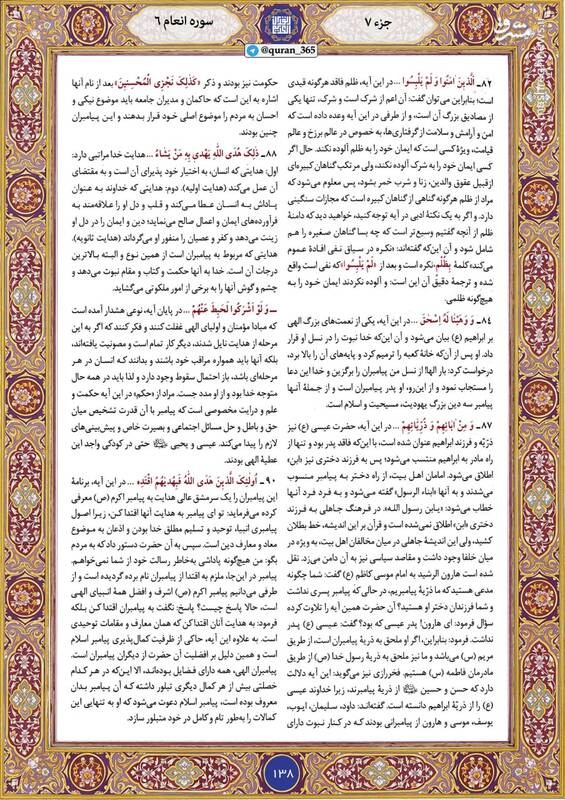 جزء ۷
سوره انعام ۶
@quran_365
مشرق
۸۲ـ الَّذِینَ آمَنُوا وَ لَمْ یَلْبِسُوا ... در این آیه، ظلم فاقد هرگونه قیدی
است؛ بنابراین می‌توان گفت: آن اعم از شرک است و شرک، تنها یکی
از مصادیق بزرگ آن است، و از طرفی در این آیه وعده داده است که
امن و آرامش و سلامت از گرفتاری‌ها، به خصوص در عالم برزخ و عالم
قیامت، ویژهٔ کسی است که ایمان خود را به ظلم آلوده نکند. حال اگر
کسی ایمان خود را به شرک آلوده نکند، ولی مرتکب گناهان کبیره‌ای
ازقبیل عقوق والدین، زنا و شرب خمر بشود، پس معلوم می‌شود که
مراد از ظلم هرگونه گناهی از گناهان کبیره است که مجازات سنگینی
دارد. و اگر به یک نکتهٔ ادبی در آیه توجه کنید، خواهید دید که دامنهٔ
ظلم از آنچه گفتیم وسیع‌تر است که چه بسا گناهان صغیره را هم
شامل شود و آن این‌که گفته‌اند: «نکره در سیاق نفی افادهٔ عموم
می‌کند» کلمهٔ بِظُلْمٍ، نکره است و بعد از «لَمْ یَلْبِسُوا» که نفی است واقع
شده و ترجمهٔ دقیق آن این است: و آلوده نکردند ایمان خود را به
هیچ‌گونه ظلمی.
۸۴ـ وَ وَهَبْنَا لَهُ إِسْحَقَ ... در این آیه، یکی از نعمت‌های بزرگ الهی
بر ابراهیم (ع) بیان می‌شود و آن این‌که خدا نبوت را در نسل او قرار
داد. او پس از آن‌که خانهٔ کعبه را ترمیم کرد و پایه‌های آن را بالا برد،
درخواست کرد: بار الها! از نسل من پیامبران را برگزین و خدا این دعا
را مستجاب نمود و از این‌رو، او پدر پیامبران است و از جملهٔ آنها
پیامبر سه دین بزرگ یهودیت، مسیحیت و اسلام است.
۸۷ـ وَ مِنْ آبَائِهِمْ وَ ذُرِّیَّاتِهِمْ ... در این آیه، حضرت عیسی (ع) نیز
ذرّیّه و فرزند ابراهیم عنوان شده است، با این‌که فاقد پدر بود و تنها از
راه مادر به ابراهیم منتسب می‌شود؛ پس به فرزند دختری نیز «ابن»
اطلاق می‌شود. امامان اهل بیت، از راه دختر به پیامبر منسوب
می‌شدند و به آنها «ابناء الرسول» گفته می‌شود و به فرد فرد آنها
خطاب می‌شود: «یابن رسول الله». در فرهنگ جاهلی به فرزند
دختری «ابن» اطلاق نمی‌شده است و قرآن بر این اندیشه، خط بطلان
کشید، ولی این اندیشهٔ جاهلی در میان مخالفان اهل بیت، به ویژه در
میان خلفا وجود داشت و مقاصد سیاسی نیز به آن دامن می‌زد. نقل
شده است هارون الرشید به امام موسی کاظم (ع) گفت: شما چگونه
مدعی هستید که ما ذریّهٔ پیامبریم، در حالی که پیامبر پسری نداشت
و شما فرزندان دختر او هستید؟ آن حضرت همین آیه را تلاوت کرده
سؤال فرمود: ای هارون! پدر عیسی که بود؟ گفت: عیسی (ع) پدر
نداشت. فرمود: بنابراین، اگر او ملحق به ذریهٔ پیامبران است، از طریق
مریم (س) می‌باشد و ما نیز ملحق به ذریهٔ رسول خدا (ص) از طریق
مادرمان فاطمه (س) هستیم. فخررازی می‌گوید: این آیه دلالت
دارد که حسن و حسین از ذریهٔ پیامبرند، زیرا خداوند عیسی
(ع) را از ذریّهٔ ابراهیم دانسته است. گفته‌اند: داود، سلیمان، ایوب،
یوسف، موسی و هارون از پیامبرانی بودند که در کنار نبوت دارای
حکومت نیز بودند و ذکر «کَذَلِکَ نَجْزِی الْمُحْسِنِینَ» بعد از نام آنها
اشاره به این است که حاکمان و مدیران جامعه باید موضوع نیکی و
احسان به مردم را موضوع اصلی خود قرار بدهند و این پیامبران
چنین بودند.
۸۸ـ ذَلِکَ هُدَی اللَّهِ یَهْدِی بِهِ مَنْ یَشَاءُ ... هدایت خدا مراتبی دارد:
اول: هدایتی که انسان، به اختیار خود پذیرای آن است و به مقتضای
آن عمل می‌کند (هدایت اولیه). دوم: هدایتی که خداوند به عنوان
پاداش به انسان عطا می‌کند و قلب و دل او را علاقه‌مند به
فرآورده‌های ایمان و اعمال صالح می‌نماید؛ دین و ایمان را در دل او
زینت می‌دهد و کفر و عصیان را منفور او می‌گرداند (هدایت ثانویه).
هدایتی که مربوط به پیامبران است از همین نوع و البته بالاترین
درجات آن است. خدا به آنها حکمت و کتاب و مقام نبوت می‌دهد و
چشم و گوش آنها را به برخی از امور ملکوتی می‌گشاید.
ـ وَ لَوْ أَشْرَکُوا لَحَبِطَ عَنْهُمْ ... در پایان آیه، نوعی هشدار آمده است
که مبادا مؤمنان و اولیای الهی غفلت کنند و فکر کنند که اگر به این
مرحله از هدایت نایل شدند، دیگر کار تمام است و مصونیت یافته‌اند،
بلکه آنها باید همواره مراقب خود باشند و بدانند که انسان در هر
مرحله‌ای باشد، باز احتمال سقوط وجود دارد و لذا باید در همه حال
متوجه خدا بود و از او مدد جست. مراد از «حکم» در این آیه حکمت و
علم و درایت مخصوصی است که پیامبر با آن قدرت تشخیص میان
حق و باطل و حل مسائل اجتماعی و بصیرت خاص و پیش‌بینی‌های
لازم را پیدا می‌کند. عیسی و یحیی حتی در کودکی واجد این
عطیهٔ الهی بودند.
۹۰ـ أُولَئِکَ الَّذِینَ هَدَی اللَّهُ فَبِهُدَیهُمُ اقْتَدِهِ ... در این آیه، برنامهٔ
این پیامبران را یک سرمشق عالی هدایت به پیامبر اکرم (ص) معرفی
کرده می‌فرماید: تو ای پیامبر به هدایت آنها اقتدا کن، زیرا اصول
پیامبری انبیا، توحید و تسلیم مطلق خدا بودن و اذعان به موضوع
معاد و معارف دین است. سپس به آن حضرت دستور داد که به مردم
بگو: من هیچ‌گونه پاداشی به‌خاطر رسالت خود از شما نمی‌خواهم.
پیامبر در این‌جا، ملزم به اقتدا از پیامبران نام برده گردیده است و از
طرفی می‌دانیم پیامبر اکرم (ص) اشرف و افضل همهٔ انبیای الهی
است، حالا پاسخ چیست؟ پاسخ: نگفت به پیامبران اقتدا کن بلکه
فرمود: به هدایت آنان اقتدا کن که همان معارف و مقامات توحیدی
است. به علاوه این آیه، حاکی از ظرفیت کمال‌پذیری پیامبر اسلام
است و همین دلیل بر افضلیت آن حضرت از دیگران پیامبران است.
پیامبران الهی، همه دارای فضایل بوده‌اند، الا این‌که در هر کدام
خصلتی بیش از هر کمال دیگری تبلور داشته که آن پیامبر بدان
معروف بوده است، پیامبر اسلام دعوت می‌شود که او به تنهایی این
کمالات را به‌طور تام و کامل در خود متبلور سازد.
۱۳۸